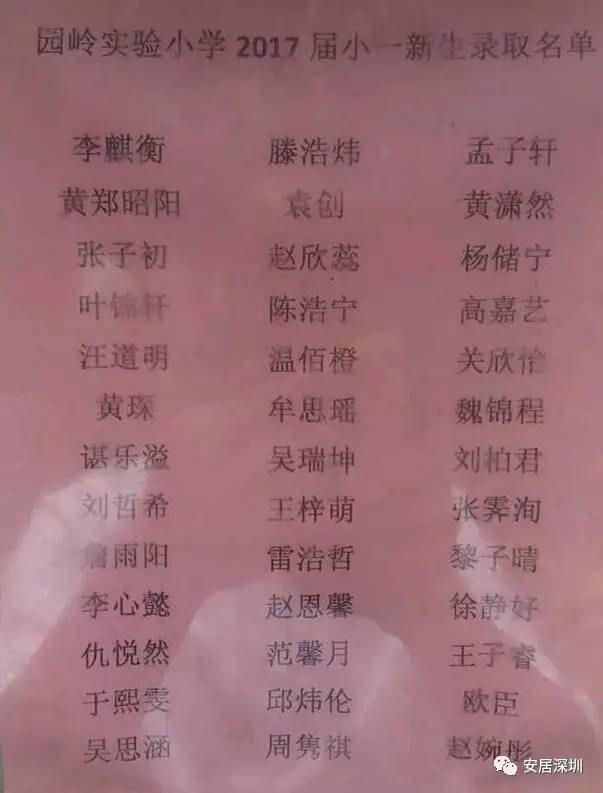 园岭实验小学 2017 届小一新生录取名单
李麒衡 滕浩炜 孟子轩
黄郑昭阳 袁创 黄潇然
张子初 赵欣蕊 杨储宁
叶锦轩 陈浩宁 高嘉艺
汪道明 温佰橙 关欣怡
黄琛 牟思瑶 魏锦程
谌乐溢 吴瑞坤 刘柏君
刘哲希 王梓萌 张霁洵
詹雨阳 雷浩哲 黎子晴
李心懿 赵恩馨 徐静好
仇悦然 范馨月 王子睿
于熙雯 邱炜伦 欧臣
吴思涵 周隽祺 赵婉彤
安居深圳